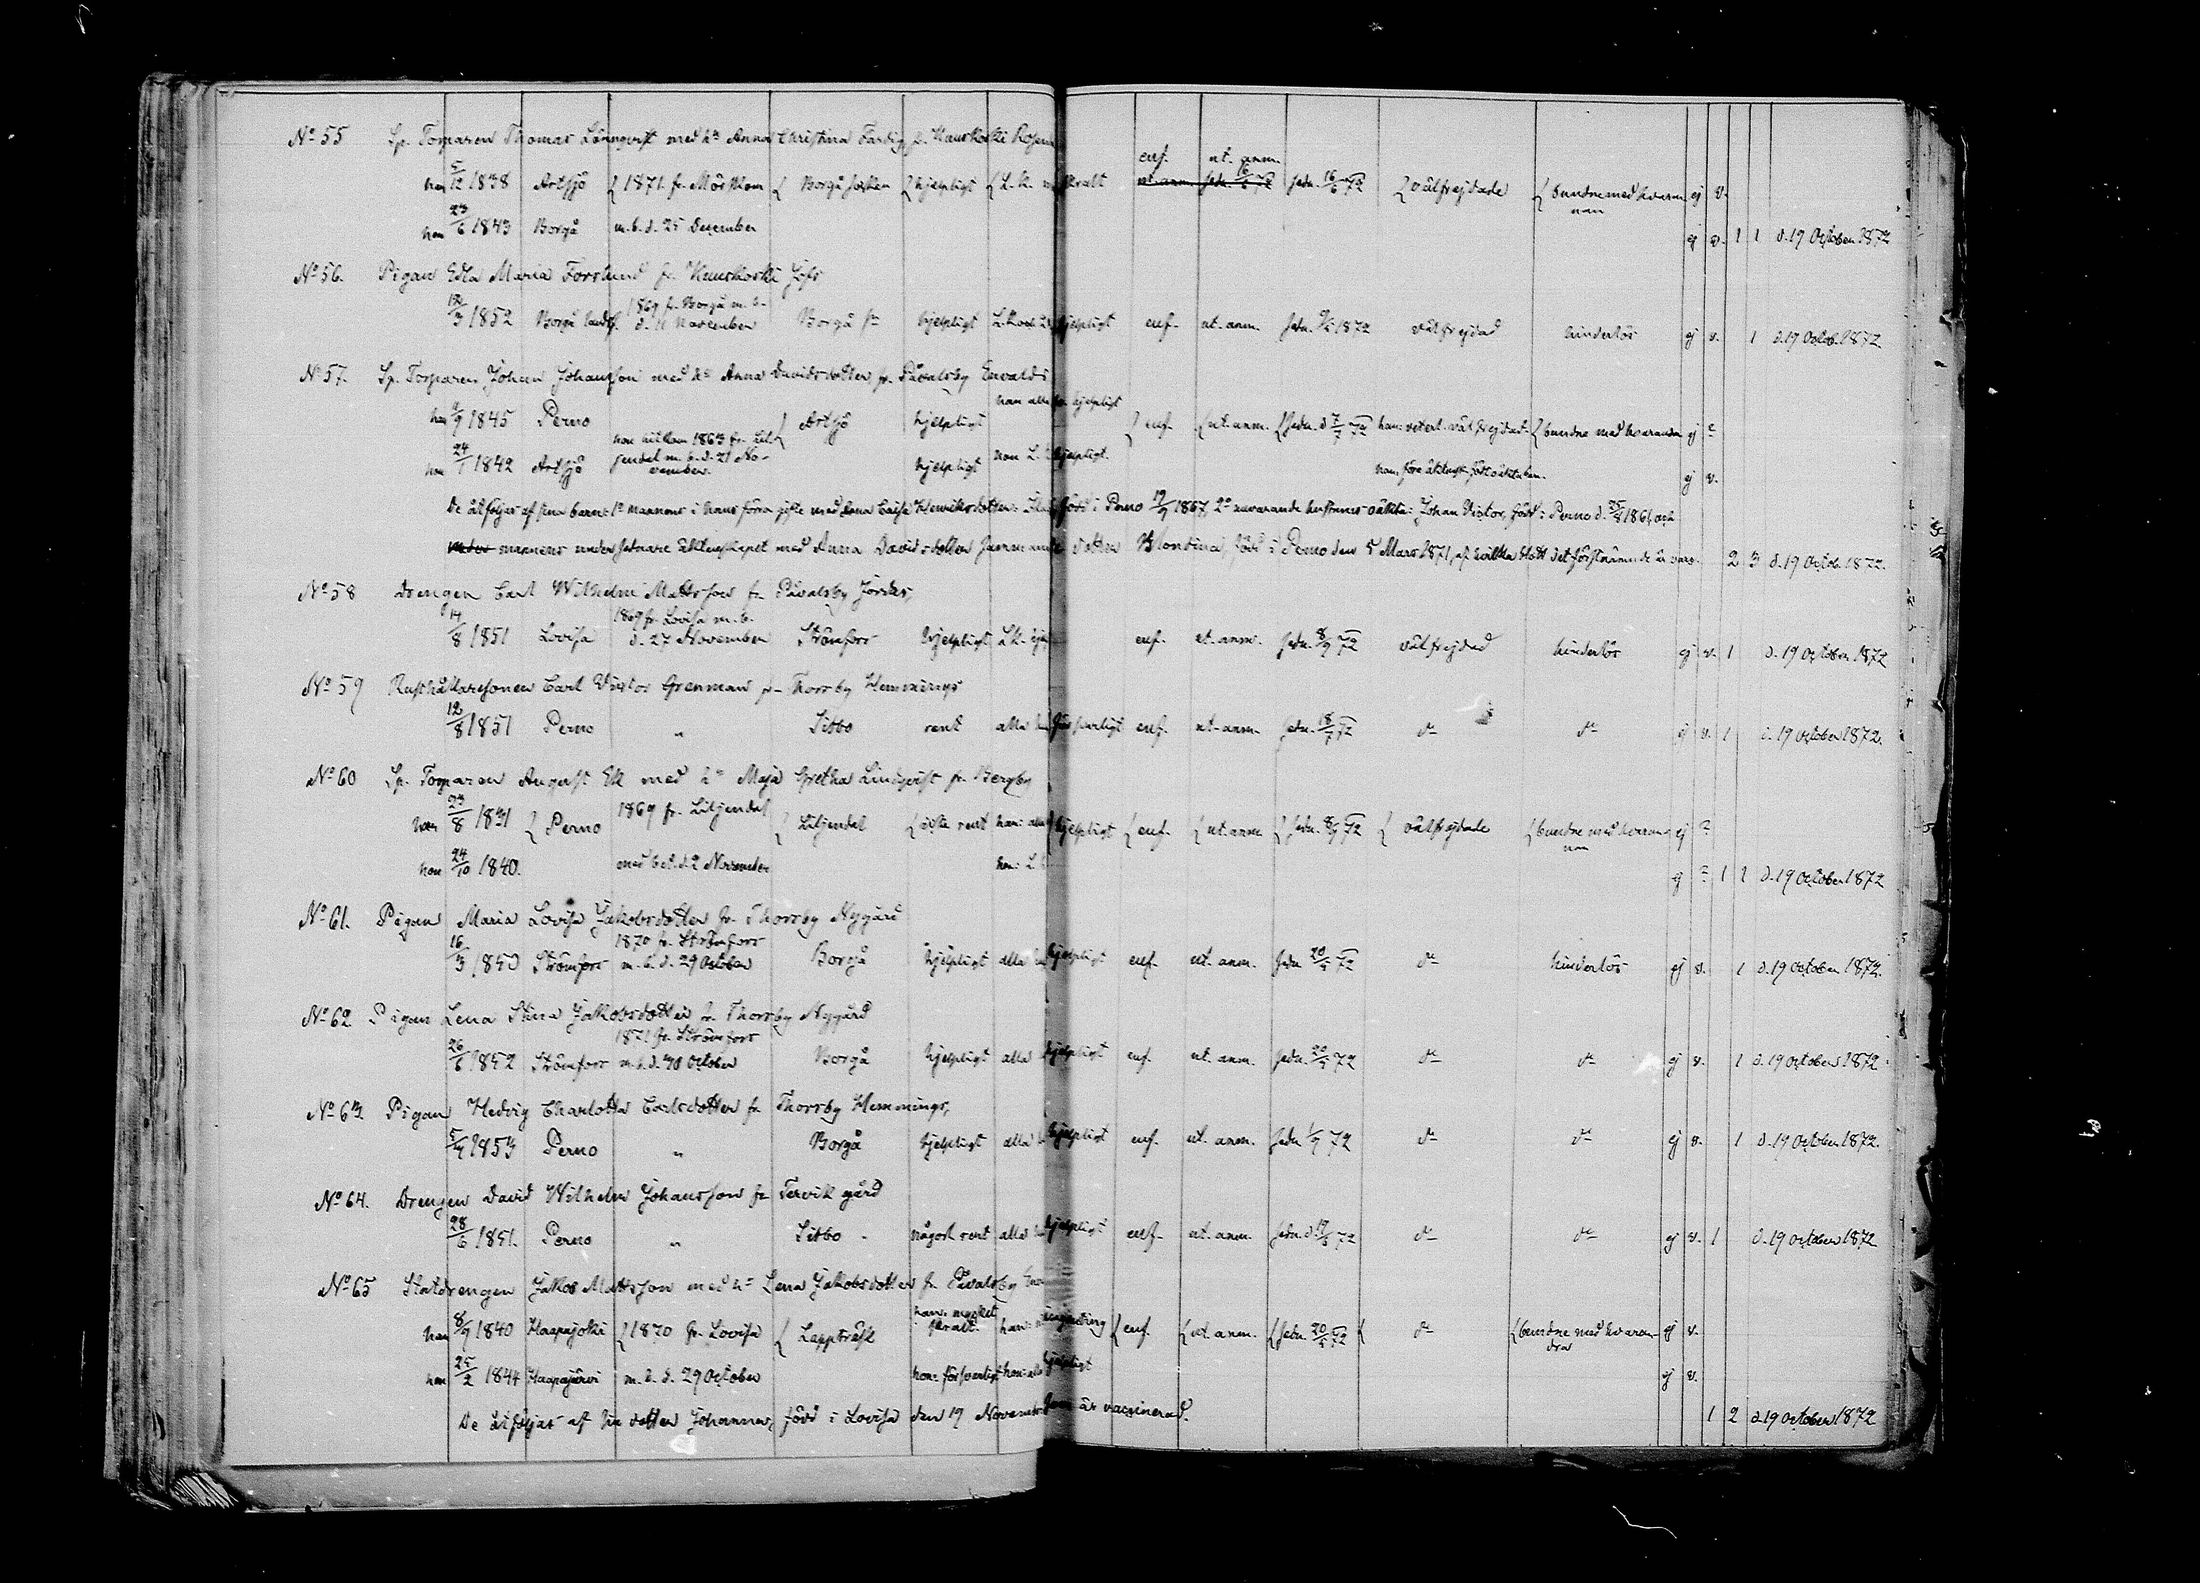 No 55 Sp. Torparen Thomas Lönnqvist med h: Anna Christina Fardig fr. Kuuskoski
han 5/12 1838 Artsjö { 1871 fr. Mörskom { Borgå socken { hjelpligt { L. K. svagt enf. nt. anm. sedn. 16/6 72 { välfrejdade { bundne med hvaran ej v.
nan
hon 23/6 1843 Borgå m. b. d. 25 December ej v. 1 1 d. 19 October 1872
No 56. Pigan Edla Maria Forslund fr. Kuuskoski Jofs
1869 fr. Borgå m. b.
1852 Borgå landsf. d. 11 November Borgå sn hjelpligt hjelpligt enf. nt. anm. sedn. 1872 välfrejdad hinderlös ej v. 1 d. 19 Octob. 1872.
No 57. Sp. Torparen Johan Johansson med h: Anna Davidsdotter fr. Påvalsby Ervalds
han alla hjelpligt
han 1845 Perno { Artsjö hjelpligt { enf. { nt. anm. { sedn. d 7/7 72 han: veterl. välfrejdad { bundne med hvarandra ej
hon 24/1 1842 Artsjö hon utkom 1863 fr. Liljendal m. b. d. 21 November hjelpligt hon L. hjelpligt. hon: före äktensk. födt oäkta barn. ej v.
De åtföljas af sina barn: 1o mannens i hans förra gifte med Lena Caisa Henriksdotter: född i Perno 19/9 1867, 2o nuvarande hustruns oäkta: Johan Victor, född i Perno d. 25/8 1861 och
mannens under sednare äktenskapet med Anna Davidsdotter dotter Blondina, född i Perno den 5 Mars 1871, af hvilka blott det förstnämnde är vacc. 2 3 d. 19 Octob. 1872.
No 58 Drengen Carl Wilhelm Mattsson fr. Påvalsby Jördas,
1869 fr. Lovisa m. b.
14/8 1851 Lovisa d. 27 November Strömfors hjelpligt L. K. enf. nt. anm. sedn. 8/9 72 välfrejdad hinderlös ej v. 1 d. 19 October 1872
No 59 Rusthållaresonen Carl Victor Grenman fr. Thorsby Hemmings
12/8 1851 Perno " Sibbo rent alla försvarligt enf. nt. anm. sedn. 18/ 72 do do ej v. 1 d. 19 October 1872.
No 60 Sp. Torparen August Ek med h: Maja Gretha Lindqvist fr. Bergby
han 23/8 1831 { Perno 1869 fr. Liljendal { Liljendal { rent han: alla hjelpligt { enf. { nt. anm. { sedn. 8/9 72 { välfrejdade { bundne med hvaran ej
nan
hon 24/10 1840. med bet. d. 2 November hon: L. ej 1 1 d. 19 October 1872
No 61. Pigan Maria Lovisa Jakobsdotter fr. Thorsby Nygård
1870 fr. Strömfors
16/3 1850 Strömfors m. b. d. 29 October Borgå hjelpligt alla hjelpligt enf. nt. anm. sedn 20/ 72 do hinderlös ej v. 1 d. 19 October 1872.
No 62. Pigan Lena Stina Jakobsdotter fr. Thorsby Nygård
1871 fr. Strömfors
26/6 1852 Strömfors m. b. d. 30 October Borgå hjelpligt alla hjelpligt enf. nt. anm. sedn. 20/ 72 do do ej v. 1 d. 19 October 1872
No 63 Pigan Hedvig Charlotta Carlsdotter fr. Thorsby Hemmings,
1853 Perno " Borgå hjelpligt alla hjelpligt enf. nt. anm. sedn 1/9 72 do do ej v. 1 d. 19 October 1872.
No 64. Drengen David Wilhelm Johansson fr. Tervik gård
28/6 1851. Perno " Sibbo något rent alla hjelpligt enf. nt. anm. sedn. d 19/ 72 do do ej v. 1 d. 19 October 1872
No 65 Statdrengen Jakob Mattsson med h: Lena Jakobsdotter fr. Påvalsby
han: mycket
han 8/9 1840 Haapajoki { 1870 fr. Lovisa { Lappträsk svagt. han: { enf. { nt. anm. { sedn. 20/ 72 { do { bundne med hvaran ej v.
dra
hon 25/2 1844 Haapajärvi m. b. d. 29 October hon: försvarligt hon: alla hjelpligt ej v.
De åtföljas af sin dotter Johanna, född i Lovisa den 19 November är vaccinerad. 1 2 d. 19 October 1872